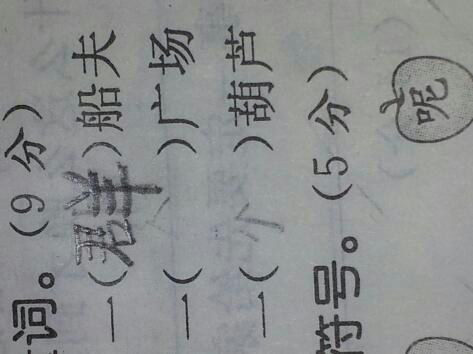 词。(9分)
一(群)船夫
一( )广场
一( )葫芦
符号。(5分)
呢